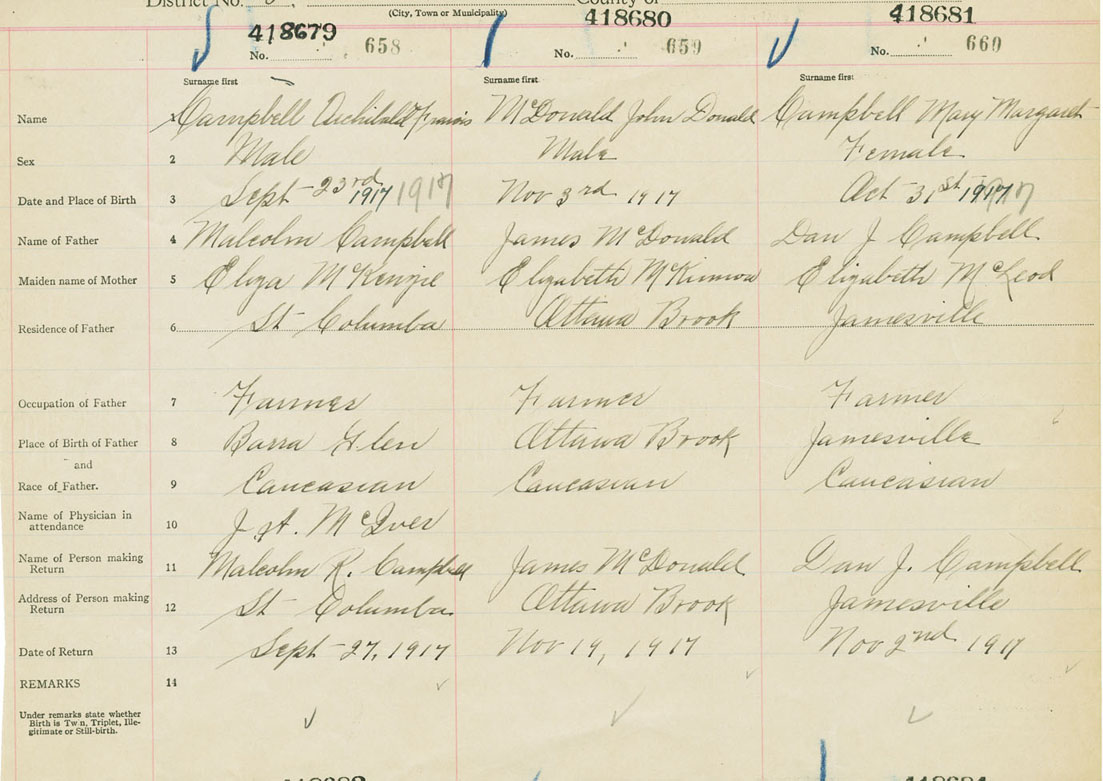 District No. County of
(City, Town or Municipality)
418679 418680 418681
No. 658 No. 659 No. 660
Surname first Surname first Surname first
Name 1 Campbell Archibald Francis McDonald John Donald Campbell Mary Margaret
Sex 2 Male Male Female
Date and Place of Birth 3 Sept 23rd 1917 1917 Nov 3rd 1917 Oct 31st 1917 1917
Name of Father 4 Malcolm Campbell James McDonald Dan J Campbell
Maiden name of Mother 5 Eliza McKenzie Elizabeth McKinnon Elizabeth McLeod
Residence of Father 6 St Columba Ottawa Brook Jamesville
Occupation of Father 7 Farmer Farmer Farmer
Place of Birth of Father 8 Barra Glen Ottawa Brook Jamesville
and
Race of Father. 9 Caucasian Caucasian Caucasian
Name of Physician in
attendance 10 J. A. McIver
Name of Person making
Return 11 Malcolm R. Campbell James McDonald Dan J. Campbell
Address of Person making
Return 12 St Columba Ottawa Brook Jamesville
Date of Return 13 Sept 27, 1917 Nov 19, 1917 Nov 2nd 1917
REMARKS 14
Under remarks state whether
Birth is Twin, Triplet, Ille-
gitimate or Still-birth.